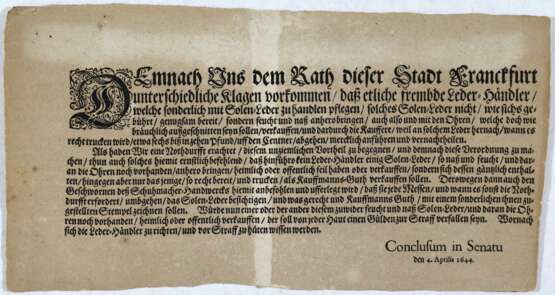 DEmnach Vns dem Rath dieser Stadt Franckfurt
vnterschiedliche Klagen vorkommen / daß etliche frembde Leder-Händler /
welche sonderlich mit Solen-Leder zu handlen pflegen / solches Solen-Leder nicht / wie sichs ge-
bühret / genugsam bereit / sondern feucht vnd naß anherobringen / auch also vnd mit den Ohren / welche doch wie
bräuchlich auffgeschnitten seyn sollen / verkauffen / vnd dardurch die Kauffere / weil an solchem Leder hernach / wann es
recht trucken wird / etwa sechs biß in zehen Pfund / auff den Centner / abgehen / mercklich anführen vnd vernachtheilen.
Als haben Wir eine Notdurfft erachtet / diesem vnziemlichen Vortheil zu begegnen / vnd demnach diese Verordnung zu ma-
chen / thun auch solches hiemit ernstlich befehlend / daß hinführo kein Leder-Händler einig Solen-Leder / so naß vnd feucht / vnd dar-
an die Ohren noch vorhanden / anhero bringen / heimlich oder offentlich feil haben oder verkauffen / sondern sich dessen gäntzlich enthal-
ten / hingegen aber nur das jenige / so recht bereit / vnd trucken / als Kauffmanns-Guth verkauffen sollen. Derowegen dann auch den
Geschwornen deß Schuhmacher-Handwercks hiemit anbefohlen vnd aufferlegt wird / daß sie jede Messen / vnd wann es sonst die Not-
durfft erfordert / vmbgehen / das Solen-Leder besichtigen / vnd was gerecht vnd Kauffmanns Guth / mit einem sonderlichen ihnen zu-
gestellten Stempel zeichnen sollen. Würde nun einer oder der ander diesem zuwider feucht vnd naß Solen-Leder / vnd daran die Oh-
ren noch vorhanden / heimlich oder offentlich verkauffen / der soll von jeder Haut einen Gülden zur Straff verfallen seyn. Wornach
sich die Leder-Händler zu richten / vnd vor Straff zu hüten wissen werden.
Conclusum in Senatu
den 4. Aprilis 1644.